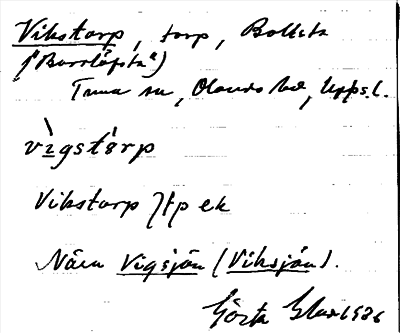 Vikstorp, torp, Bolleta
("Borrlöfsta")
Tuna sn, Olands hd, Upps.l.
vìgstårp
Vikstorp jfp ek
Nära Vigsjön (Viksjön).
Gösta 1926